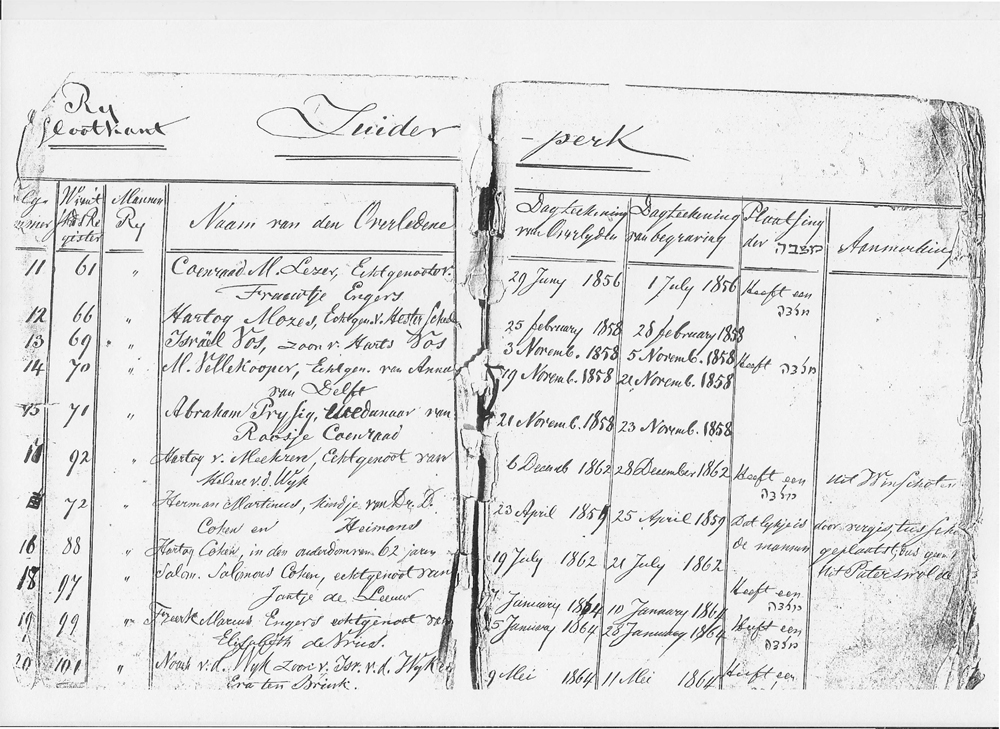 Ry
Slootkant
Zuider
-perk
Wint
Mannen
Ry
gister
Naam van den Overledene
Dagteekening
van Overlyden
Dagteekening
van begraving
Plaatsing
der מצבה
11 61 " Coenraad M. Lezer, Echtgenoot v. 29 Juny 1856 1 July 1856 Heeft een
Frouwtje Engers מצבה
12 66 " Hartog Mozes, Echtgen. v. Hester 25 february 1858 28 february 1858
13 69 " Israël Vos, zoon v. Harts Vos 3 Novemb. 1858 5 Novemb. 1858 Heeft מצבה
14 70 " M. Vellekooper, Echtgen. van Anna 19 Novemb. 1858 21 Novemb. 1858
van Delft
15 71 " Abraham Prysig, van 21 Novemb. 1858 23 Novemb. 1858
Roosje Coenraad
92 " Hartog v. Meekren, Echtgenoot van 6 Decemb 1862 28 December 1862 Heeft een uit Winschoten
Helene v.d. Wyk מצבה
72 " Herman Martinus, kindje van Dr. D. 23 April 1859 25 April 1859 Dat lykje is door vergis,
Cohen en Heimans de mannen geplaatst, dus
16 88 " Hartog Cohen, in den ouderdom van 62 jaren 19 July 1862 21 July 1862 Uit Paterswolde
18 97 " Salom. Salomons Cohen, echtgenoot van January 1864 10 January 1864 Heeft een
Jantje de Leeuw מצבה
19 99 " Marcus Engers echtgenoot van 25 January 1864 28 January 1864 Heeft een
Elisabeth de Vries. מצבה
20 101 " Noach v.d. Wyk zoon v. v.d. Wyk en 9 Mei 1864 11 Mei 1864 Heeft een
Eva ten Brink.